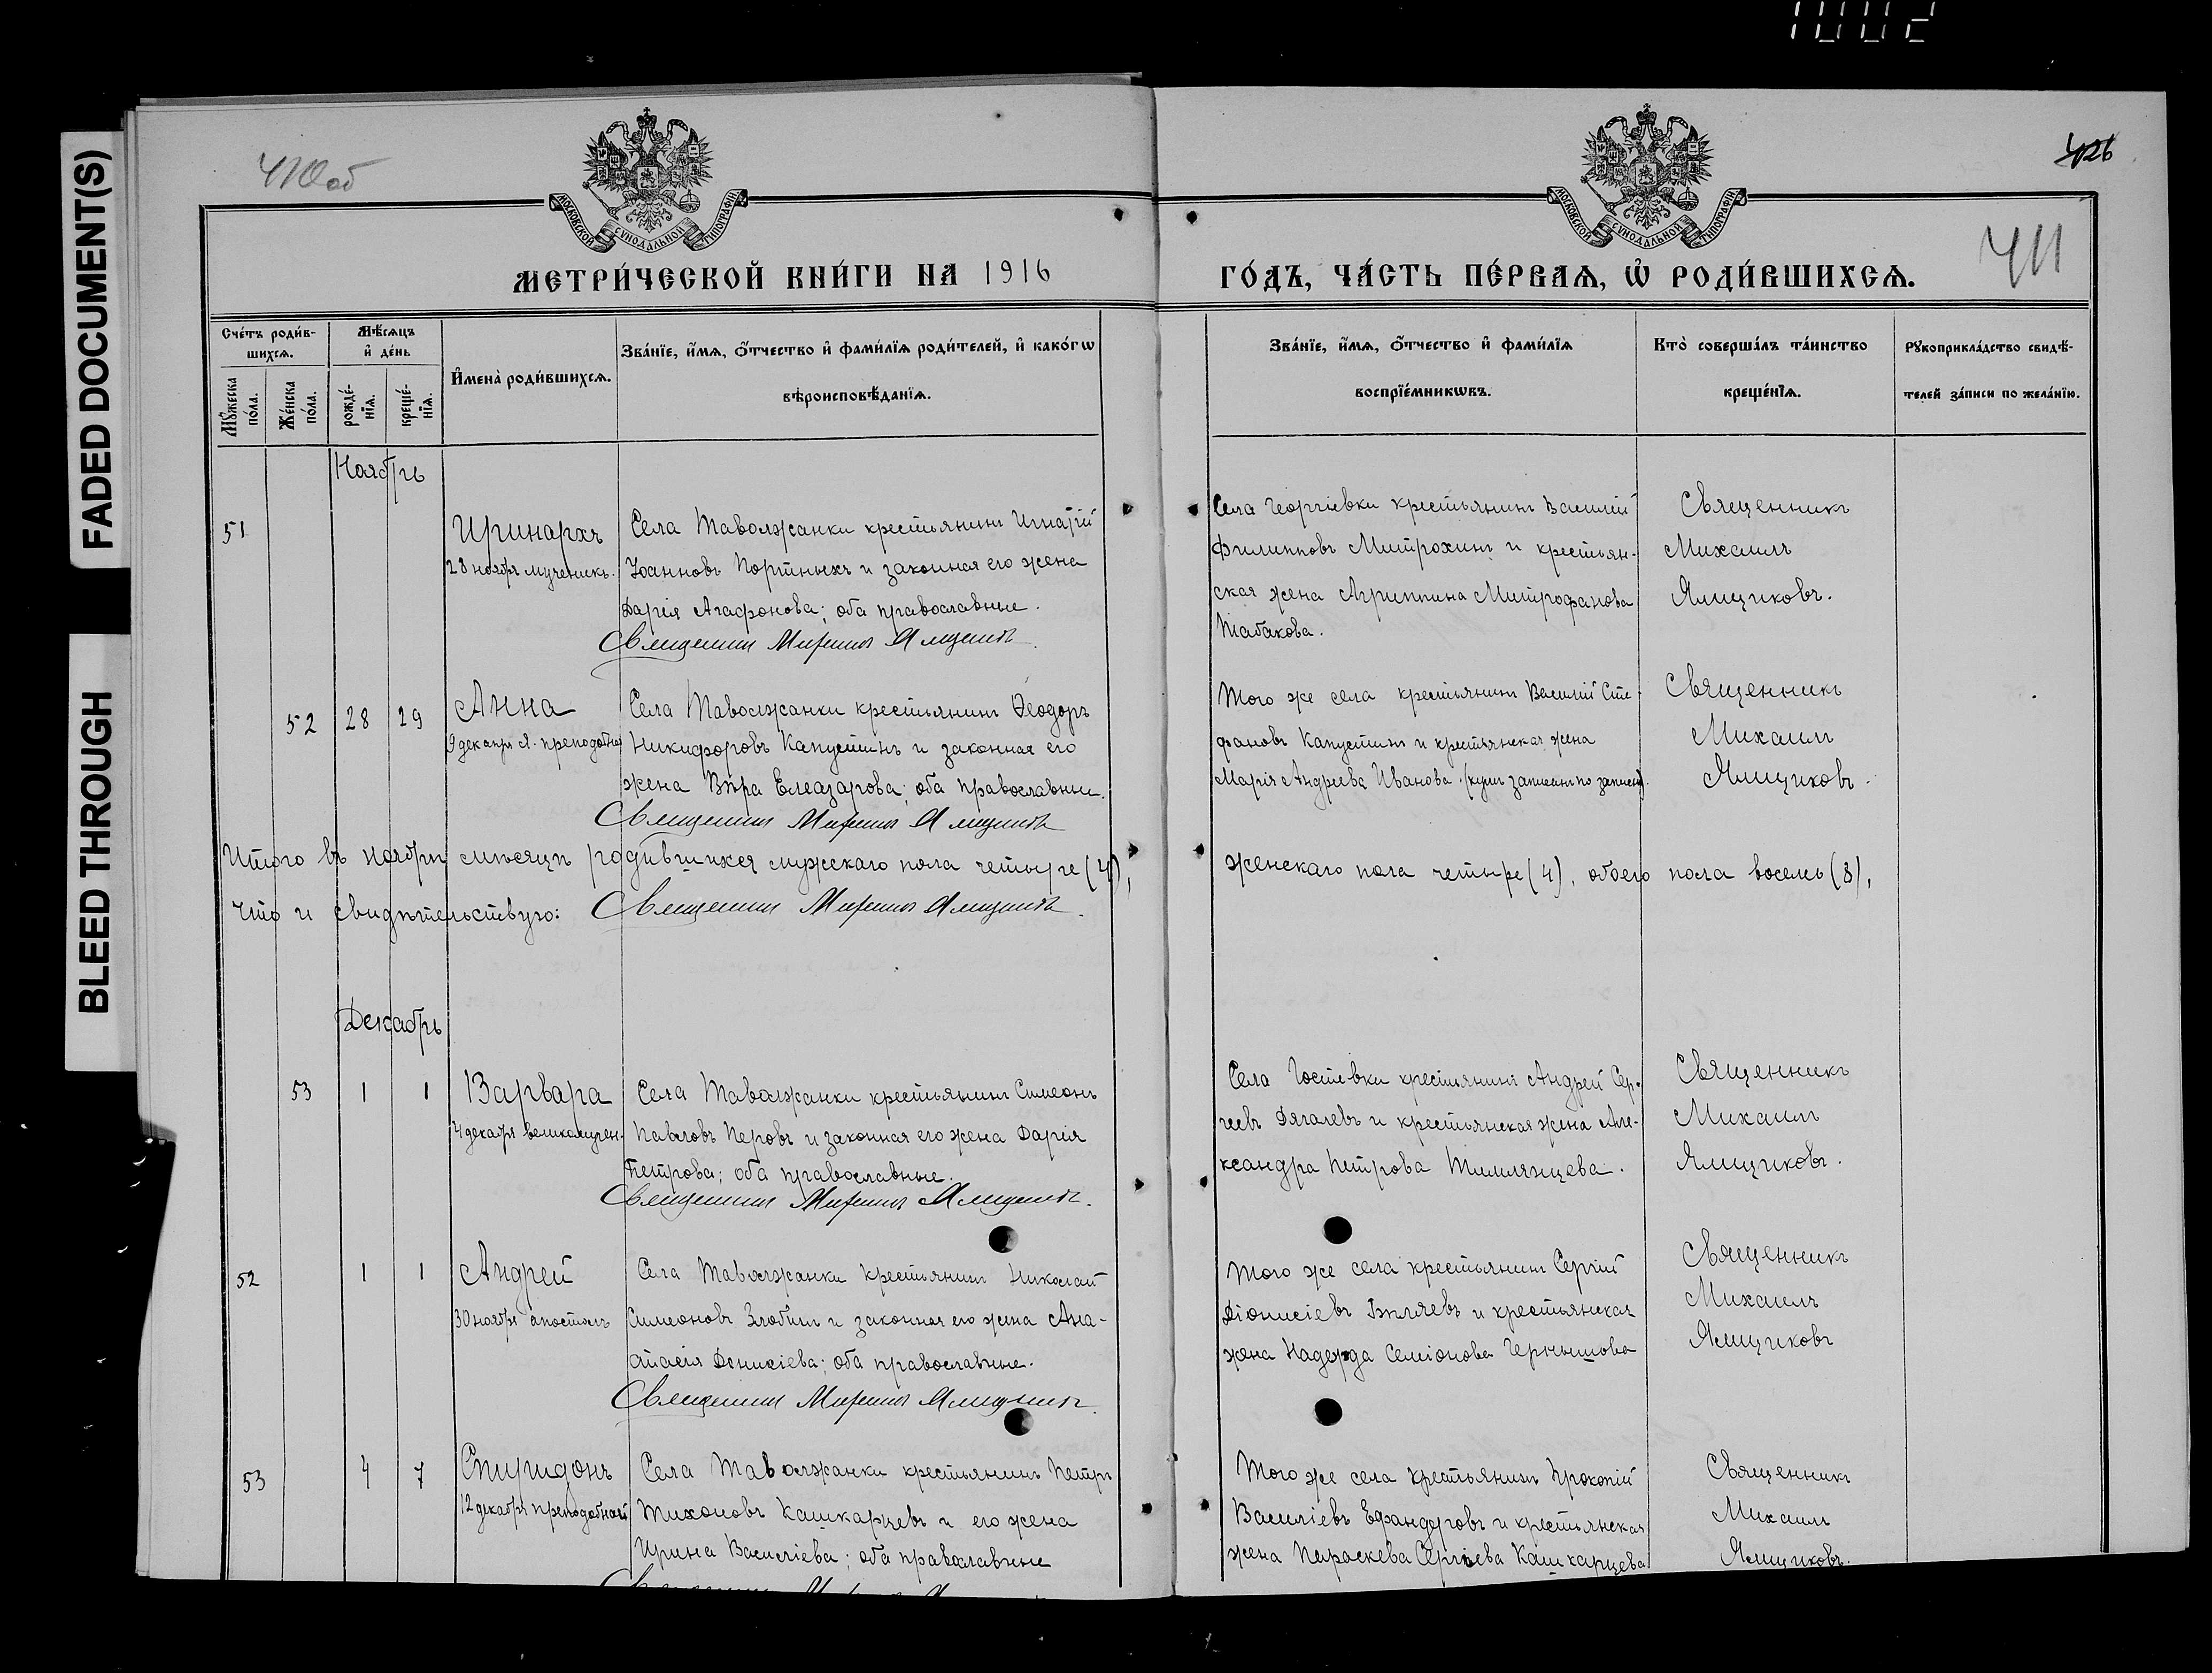 1002
FADED DOCUMENT(S)
BLEED THROUGH
410об
426
411
МОСКОВСКОЙ СѴНОДАЛЬНОЙ ТИПОГРАФІИ
МОСКОВСКОЙ СѴНОДАЛЬНОЙ ТИПОГРАФІИ
МЕТРИ́ЧЕСКОЙ КНИ́ГИ НА 1916
ГО́ДЪ, ЧА́СТЬ ПЕ́РВАѦ, Ѿ РОДИ́ВШИХСѦ.
Сче́тъ роди́в-
шихсѧ.
Мꙋжеска по́ла.
Же́нска по́ла.
Мѣ́сѧцъ
и де́нь
рожде́-
нїѧ.
креще́-
нїѧ.
И҆мена̀ роди́вшихсѧ.
Зва́нїе, и҆́мѧ, ѻ҆́тчество и҆ фами́лїѧ роди́телей, и҆ како́гѡ
вѣроисповѣ́данїѧ.
Зва́нїе, и҆́мѧ, ѻ҆́тчество и҆ фами́лїѧ
воспрїе́мникѡвъ.
Кто̀ соверша́лъ та́инство
креще́нїѧ.
Рꙋкоприкла́дство свидѣ́-
телей за́писи по жела́нїю.
Ноябрь
51
Иринархъ
28 ноября мученикъ.
Села Таволжанки крестьянинъ Игнатій
Іоанновъ Портныхъ и законная его жена
Дарія Агафонова; оба православные.
Священникъ Михаилъ Ямщиковъ.
Села Георгіевки крестьянинъ Василій
Филипповъ Митрохинъ и крестьян-
ская жена Агриппина Митрофанова
Табакова.
Священникъ
Михаилъ
Ямщиковъ.
52 28 29
Анна
9 декабря преподобная
Села Таволжанки крестьянинъ Ѳеодоръ
Никифоровъ Капустинъ и законная его
жена Вѣра Елеазарова; оба православные.
Священникъ Михаилъ Ямщиковъ
Того же села крестьянинъ Василій Сте-
фановъ Капустинъ и крестьянская жена
Марія Андреева Иванова
Священникъ
Михаилъ
Ямщиковъ.
Итого въ ноябрѣ мѣсяцѣ родившихся мужскаго пола четыре (4),
женскаго пола четыре (4), обоего пола восемь (8),
что и свидѣтельствую: Священникъ Михаилъ Ямщиковъ.
Декабрь
53 1 1
Варвара
4 декабря великомучен.
Села Таволжанки крестьянинъ Симеонъ
Павловъ Перовъ и законная его жена Дарія
Петрова; оба православные.
Священникъ Михаилъ Ямщиковъ.
Села Гостевки крестьянинъ Андрей Сер-
геевъ Дягалевъ и крестьянская жена Але-
ксандра Петрова Тимлянцева.
Священникъ
Михаилъ
Ямщиковъ.
52 1 1
Андрей
30 ноября апостолъ
Села Таволжанки крестьянинъ Николай
Симеоновъ Злобинъ и законная его жена Ана-
стасія Денисіева; оба православные.
Священникъ Михаилъ Ямщиковъ.
Того же села крестьянинъ Сергій
Діонисіевъ Бѣляевъ и крестьянская
жена Надежда Семіонова Чернышова
Священникъ
Михаилъ
Ямщиковъ
53 4 7
Спиридонъ
12 декабря преподобный
Села Таволжанки крестьянинъ Петръ
Тихоновъ Кашкарцевъ и его жена
Ирина Василіева; оба православные
Того же села крестьянинъ Прокопій
Василіевъ Ефандеровъ и крестьянская
жена Параскева Сергіева Кашкарцева
Священникъ
Михаилъ
Ямщиковъ.